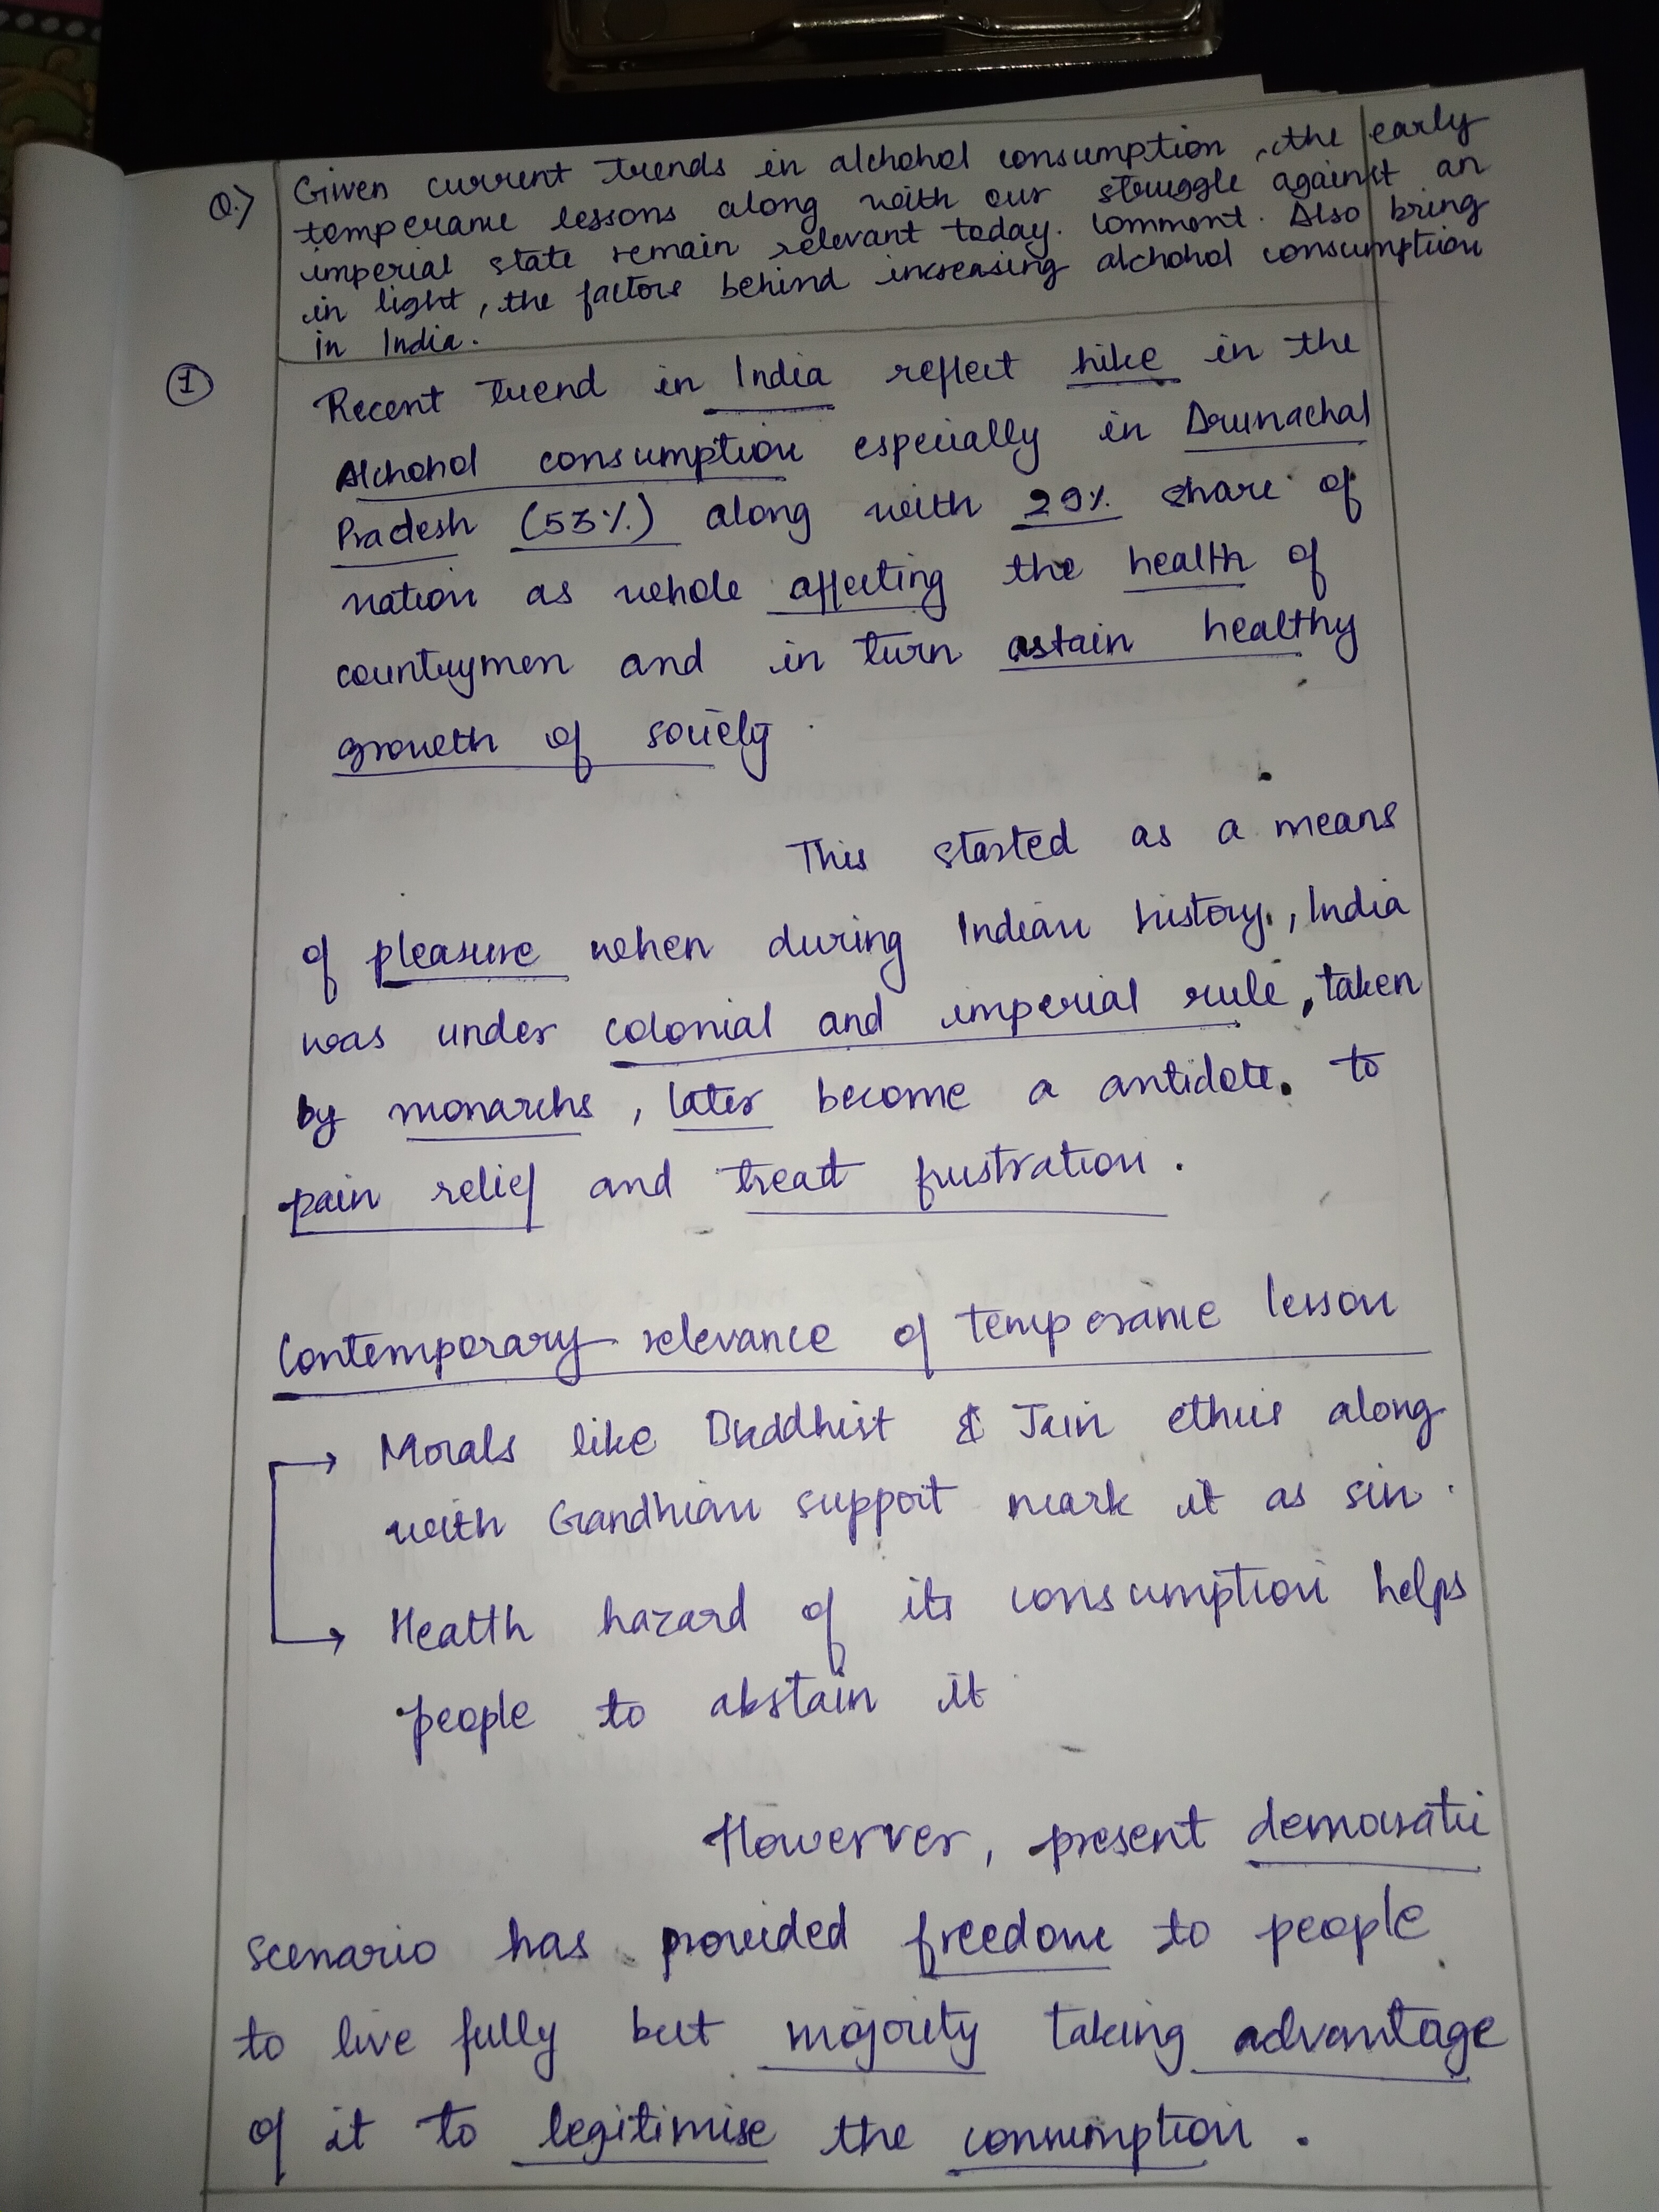 Q.) Given current trends in alchohol consumption, the early
temperance lessons along with our struggle against an
imperial state remain relevant today. Comment. Also bring
in light, the factors behind increasing alchohol consumption
in India.
① Recent trend in India reflect hike in the
Alchohol consumption especially in Arunachal
Pradesh (53%) along with 29% share of
nation as whole affecting the health of
countrymen and in turn astain healthy
growth of society.
This started as a means
of pleasure when during Indian history, India
was under colonial and imperial rule, taken
by monarchs, later become a antidote to
pain relief and treat frustration.
Contemporary relevance of temperance lesson
→ Morals like Buddhist & Jain ethics along
with Gandhian support mark it as sin.
→ Health hazard of its consumption helps
people to abstain it
Howerver, present democratic
scenario has provided freedom to people
to live fully but majority taking advantage
of it to legitimise the consumption.